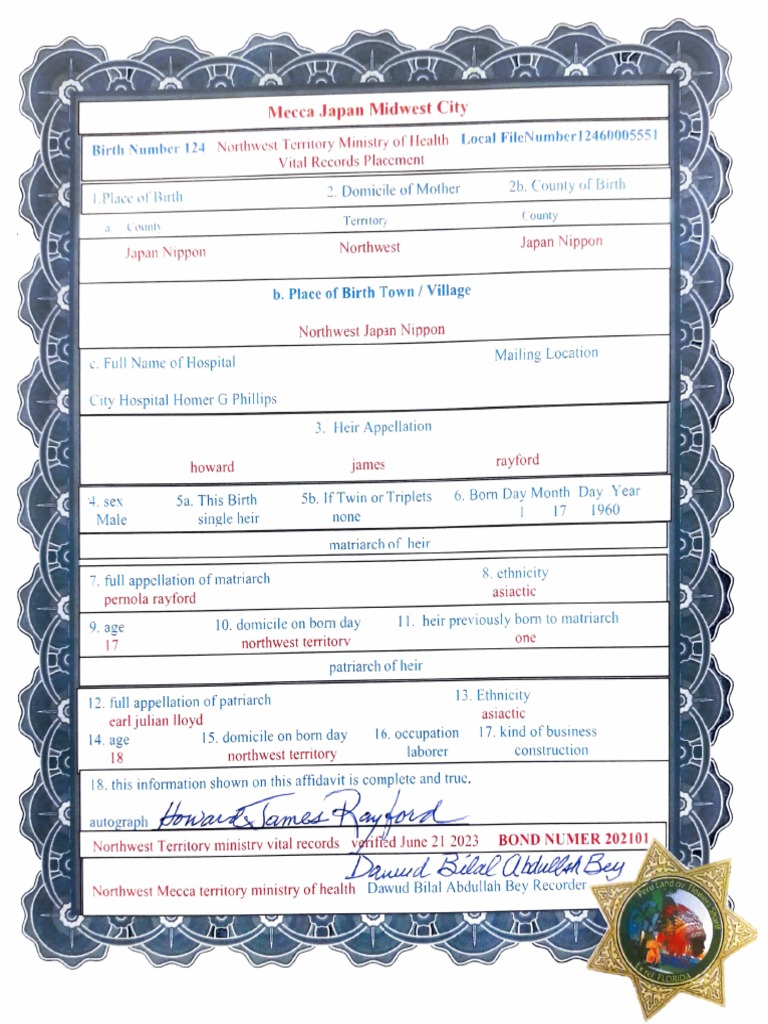 Mecca Japan Midwest City
Birth Number 124 Northwest Territory Ministry of Health Local FileNumber12460005551
Vital Records Placement
1.Place of Birth 2. Domicile of Mother 2b. County of Birth
a County Territory County
Japan Nippon Northwest Japan Nippon
b. Place of Birth Town / Village
Northwest Japan Nippon
c. Full Name of Hospital Mailing Location
City Hospital Homer G Phillips
3. Heir Appellation
howard james rayford
4. sex 5a. This Birth 5b. If Twin or Triplets 6. Born Day Month Day Year
Male single heir none 1 17 1960
matriarch of heir
7. full appellation of matriarch 8. ethnicity
pernola rayford asiactic
9. age 10. domicile on born day 11. heir previously born to matriarch
17 northwest territory one
patriarch of heir
12. full appellation of patriarch 13. Ethnicity
earl julian lloyd asiactic
14. age 15. domicile on born day 16. occupation 17. kind of business
18 northwest territory laborer construction
18. this information shown on this affidavit is complete and true.
autograph Howard James Rayford
Northwest Territory ministry vital records verified June 21 2023 BOND NUMER 202101
Dawud Bilal Abdullah Bey
Northwest Mecca territory ministry of health Dawud Bilal Abdullah Bey Recorder
Peru Land ov Flowers
FLORIDA